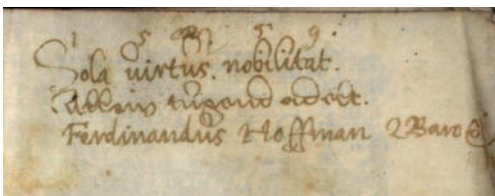 1 5 59.
Sola virtus. nobilitat.
Allein tugend adelt.
Ferdinandus Hoffman Baro